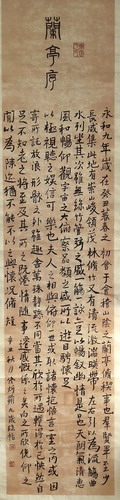 蘭亭序
永和九年歲在癸丑暮春之初會于會稽山陰之蘭亭脩稧事也羣賢畢至少
長咸集此地有崇山峻領茂林脩竹又有清流激湍暎帶左右引以為流觴曲
水列坐其次雖無絲竹管弦之盛一觴一詠亦足以暢叙幽情是日也天朗氣清惠
風和暢仰觀宇宙之大俯察品類之盛所以遊目騁懷足
以極視聽之娛信可樂也夫人之相與俯仰一世或取諸懷抱悟言一室之內或因
寄所託放浪形骸之外雖趣舍萬殊靜躁不同當其欣於所遇暫得於己快然自
足不知老之將至及其所之既倦情隨事遷感慨係之矣向之所欣俛仰之
間以為陳迹猶不能不以之興懷況脩短